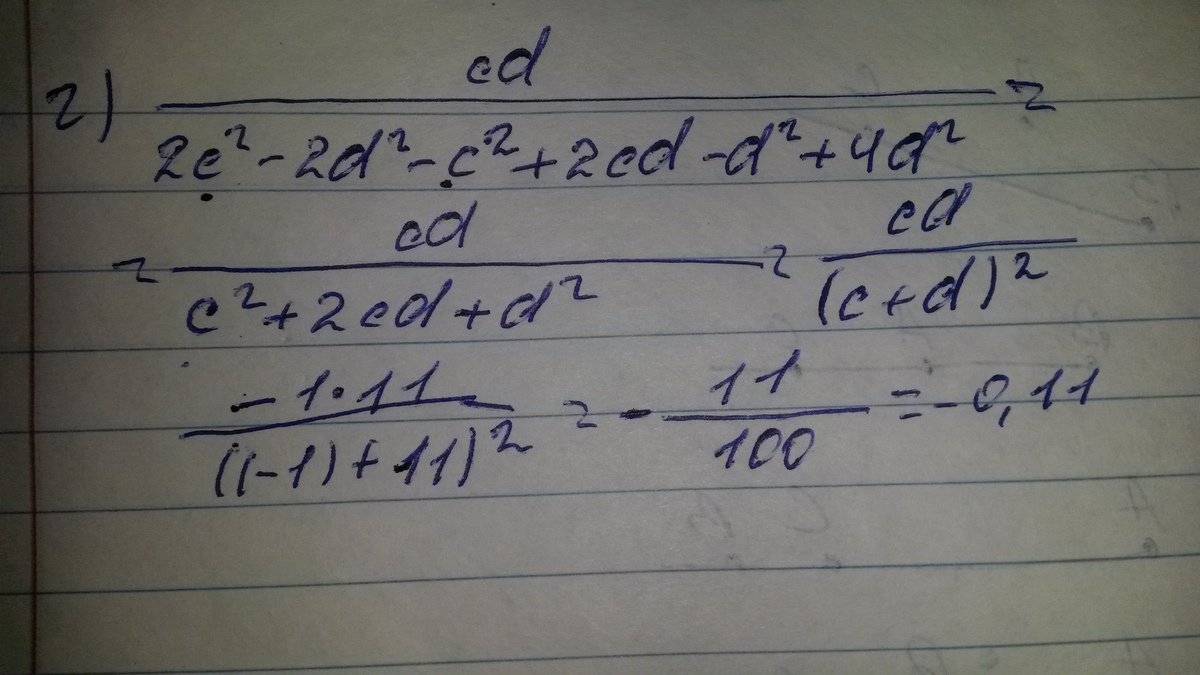 2) cd / (2c² - 2d² - c² + 2cd - d² + 4d²) =
= cd / (c² + 2cd + d²) = cd / (c+d)²
-1·11 / ((-1)+11)² = - 11/100 = -0,11